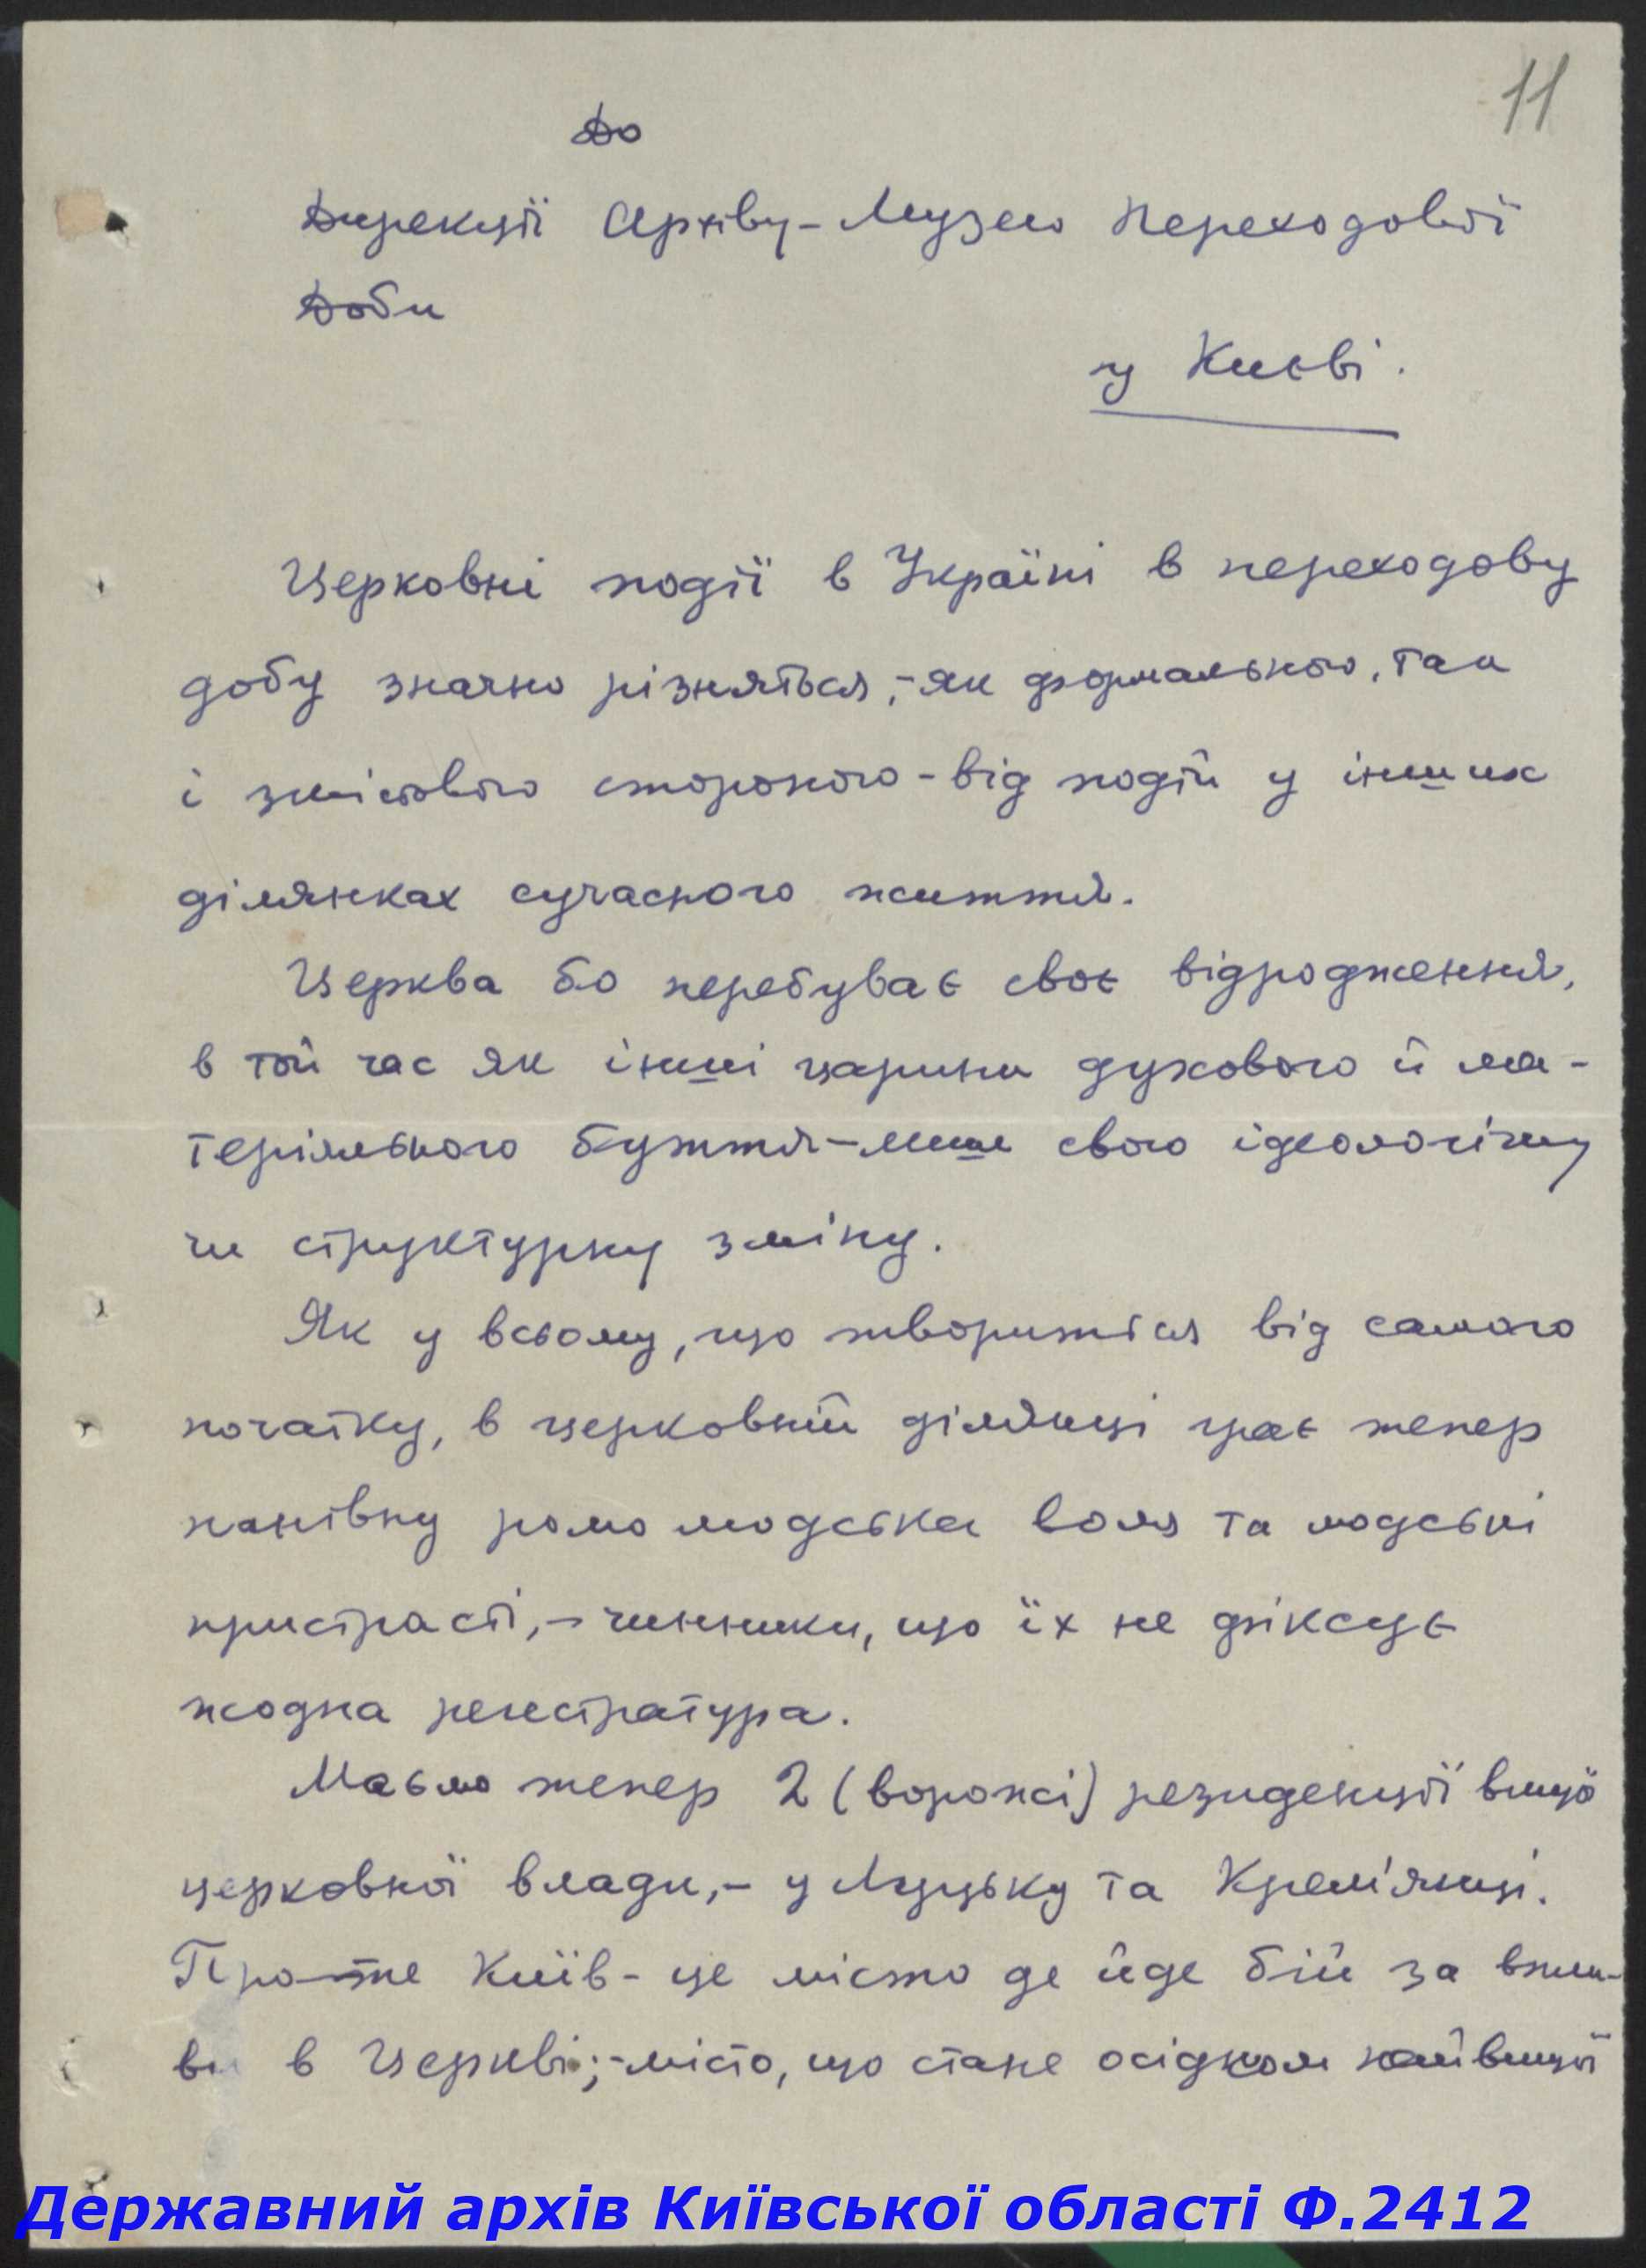 11
До
Дирекції Архіву-Музею Переходової
Доби
у Києві.
Церковні події в Україні в переходову
добу значно різняться,-як формальною, так
і змістовою стороною-від подій у інших
ділянках сучасного життя.
Церква бо перебуває своє відродження,
в той час як інші царини духового й ма-
теріяльного буття-лише свою ідеологічну
чи структурну зміну.
Як у всьому, що твориться від самого
початку, в церковній ділянці грає тепер
панівну ролю людська воля та людські
пристрасті,-чинники, що їх не фіксує
жодна регестратура.
Маємо тепер 2 (ворожі) резиденції вищої
церковної влади,- у Луцьку та Крем'янці.
Проте Київ- це місто де йде бій за впли-
ви в Церкві;-місто, що стане осідком найвищої
Державний архів Київської області Ф.2412